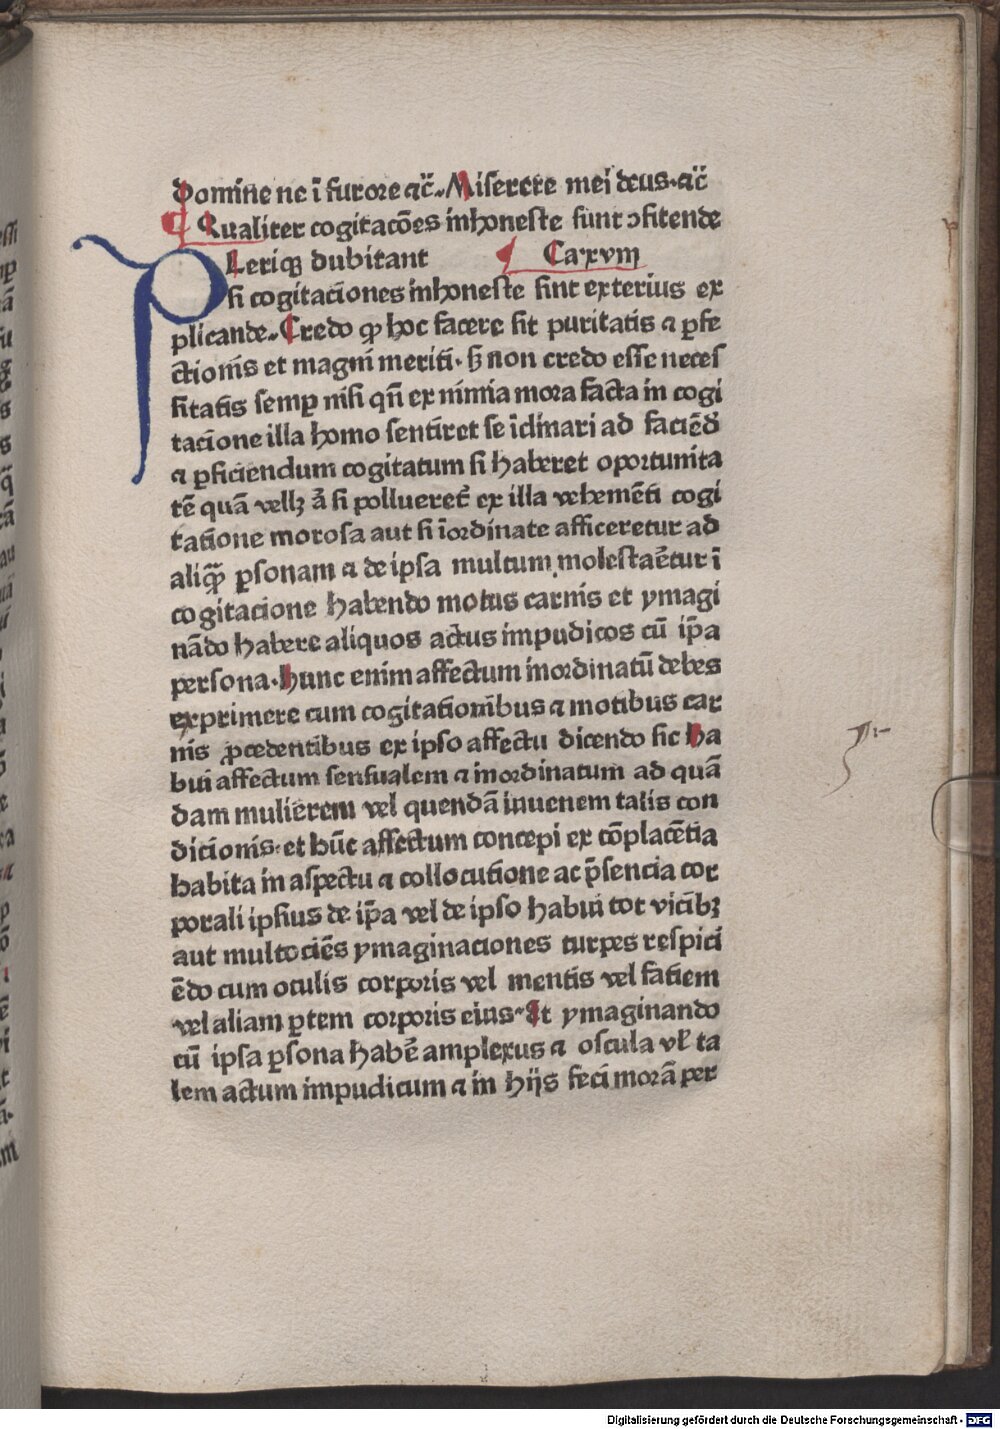 Domine ne ī furore ⁊c̄. Miserere mei deus. ⁊c̄
¶ Qualiter cogitacōes inhoneste sunt ɔfitende
PLeriqꝫ dubitant ¶ Ca. xvm
si cogitaciones inhoneste sint exterius ex
plicande. Credo ꝙ hoc facere sit puritatis ⁊ ꝑfe
ctionis et magni meriti. sꝫ non credo esse neces
sitatis semꝑ nisi qn̄ ex nimia mora facta in cogi
tacione illa homo sentiret se īclinari ad faciēd̄
⁊ ꝑficiendum cogitatum si haberet oportunita
tē quā vellꝫ ā si pollueret̄ ex illa vehemēti cogi
tatione morosa aut si īordinate afficeretur ad
aliq̄ꝫ ꝑsonam ⁊ de ipsa multum molestaētur ī
cogitacione habendo motus carnis et ymagi
nādo habere aliquos actus impudicos cū ip̄a
persona. hunc enim affectum inordinatū debes
exprimere cum cogitationibus ⁊ motibus car
nis ꝓcedentibus ex ipso affectu dicendo sic ha
bui affectum sensualem ⁊ inordinatum ad quā
dam mulierem vel quendā iuuenem talis con
dicionis. et hūc affectum concepi ex cōplacētia
habita in aspectu ⁊ collocutione ac p̄sencia cor
porali ipsius de ip̄a vel de ipso habui tot vicibꝫ
aut multociēs ymaginaciones turpes respici
ēdo cum oculis corporis vel mentis vel fatiem
vel aliam ꝑtem corporis eius. It ymaginando
cū ipsa ꝑsona habē amplexus ⁊ oscula vl̄ ta
lem actum impudicum ⁊ in hijs feci morā per
Digitalisierung gefördert durch die Deutsche Forschungsgemeinschaft - DFG